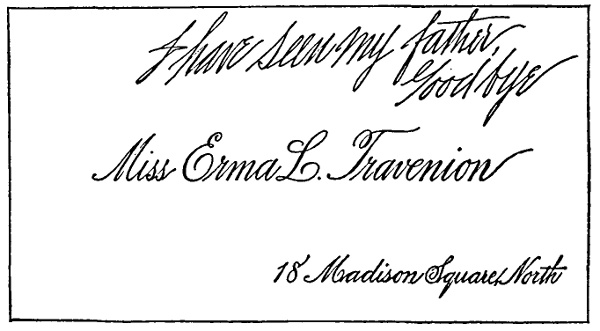 I have seen my father,
Goodbye
Miss Erma L. Travenion
18 Madison Square, North